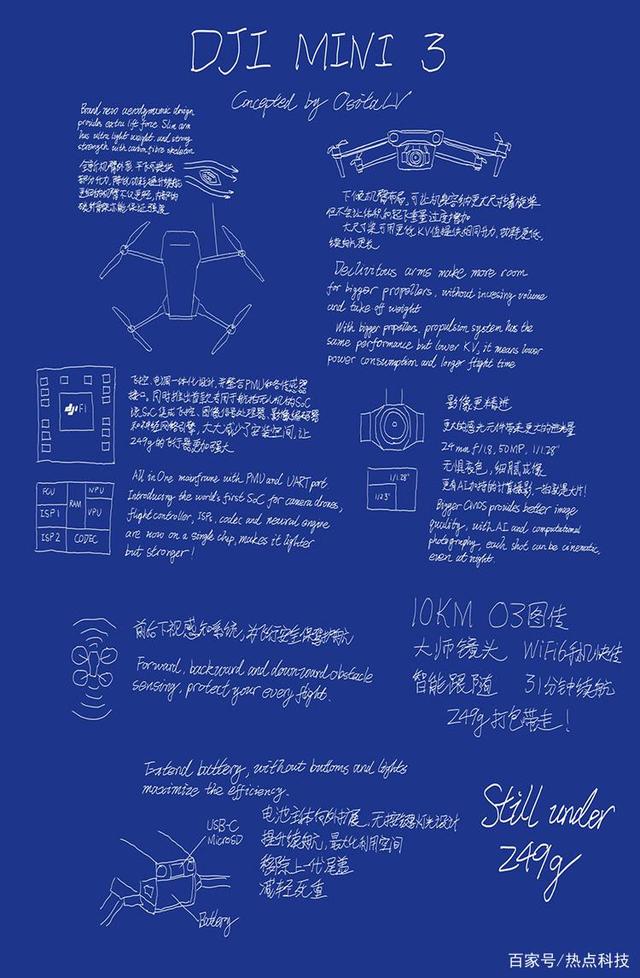 DJI MINI 3
Concepted by OsitaLV
Brand new aerodynamic design
provides extra life force Slim arm
has ultra light weight and strong
strength with carbon fibre skeleton
下倾机臂布局,可让机身容纳更大尺寸螺旋桨
但不会让体积和起飞重量过度增加
大尺寸桨可用更低KV值提供相同升力,功耗更低,
续航更长
Declivitous arms make more room
for bigger propellers, without invesing volume
and take off weight
With bigger propellers, propulsion system has the
same performance but lower KV, it means lower
power consumption and longer flight time
dji FI
飞控、电调一体化设计,并整合PMU和各传感器
接口。同时推出首款专用于航拍无人机的SoC
该SoC集成飞控、图像信号处理器、影像编码器
和神经网络引擎,大大减小了安装空间,让
249g的飞行器更加强大
FCU
NPU
RAM
ISP1
VPU
ISP2
CODEC
All in One mainframe with PMU and UART port
Introducing the world's first SoC for camera drones,
flight controller, ISPs, codec and neural engine
are now on a single chip, makes it lighter
but stronger!
影像更精进
更大的感光元件带来更大的进光量
24mm f/1.8, 50MP, 1/1.28"
无惧夜色,细腻成像
更有AI加持的计算摄影,一拍就是大片!
1/1.28"
1/2.3"
Bigger CMOS provides better image
quality, with AI and computational
photography, each shot can be cinematic,
even at night.
前后下视感知系统,为飞行安全保驾护航
Forward, backward and downward obstacle
sensing, protect your every flight.
10KM O3图传
大师镜头 WiFi6手机快传
智能跟随 31分钟续航
249g打包带走!
Extend battery, without buttons and lights
maximize the efficiency.
电池主体向外扩展,无按键灯光设计
提升续航,最大化利用空间
移除上一代尾盖
减轻死重
USB-C
MicroSD
Battery
Still under
249g
百家号/热点科技